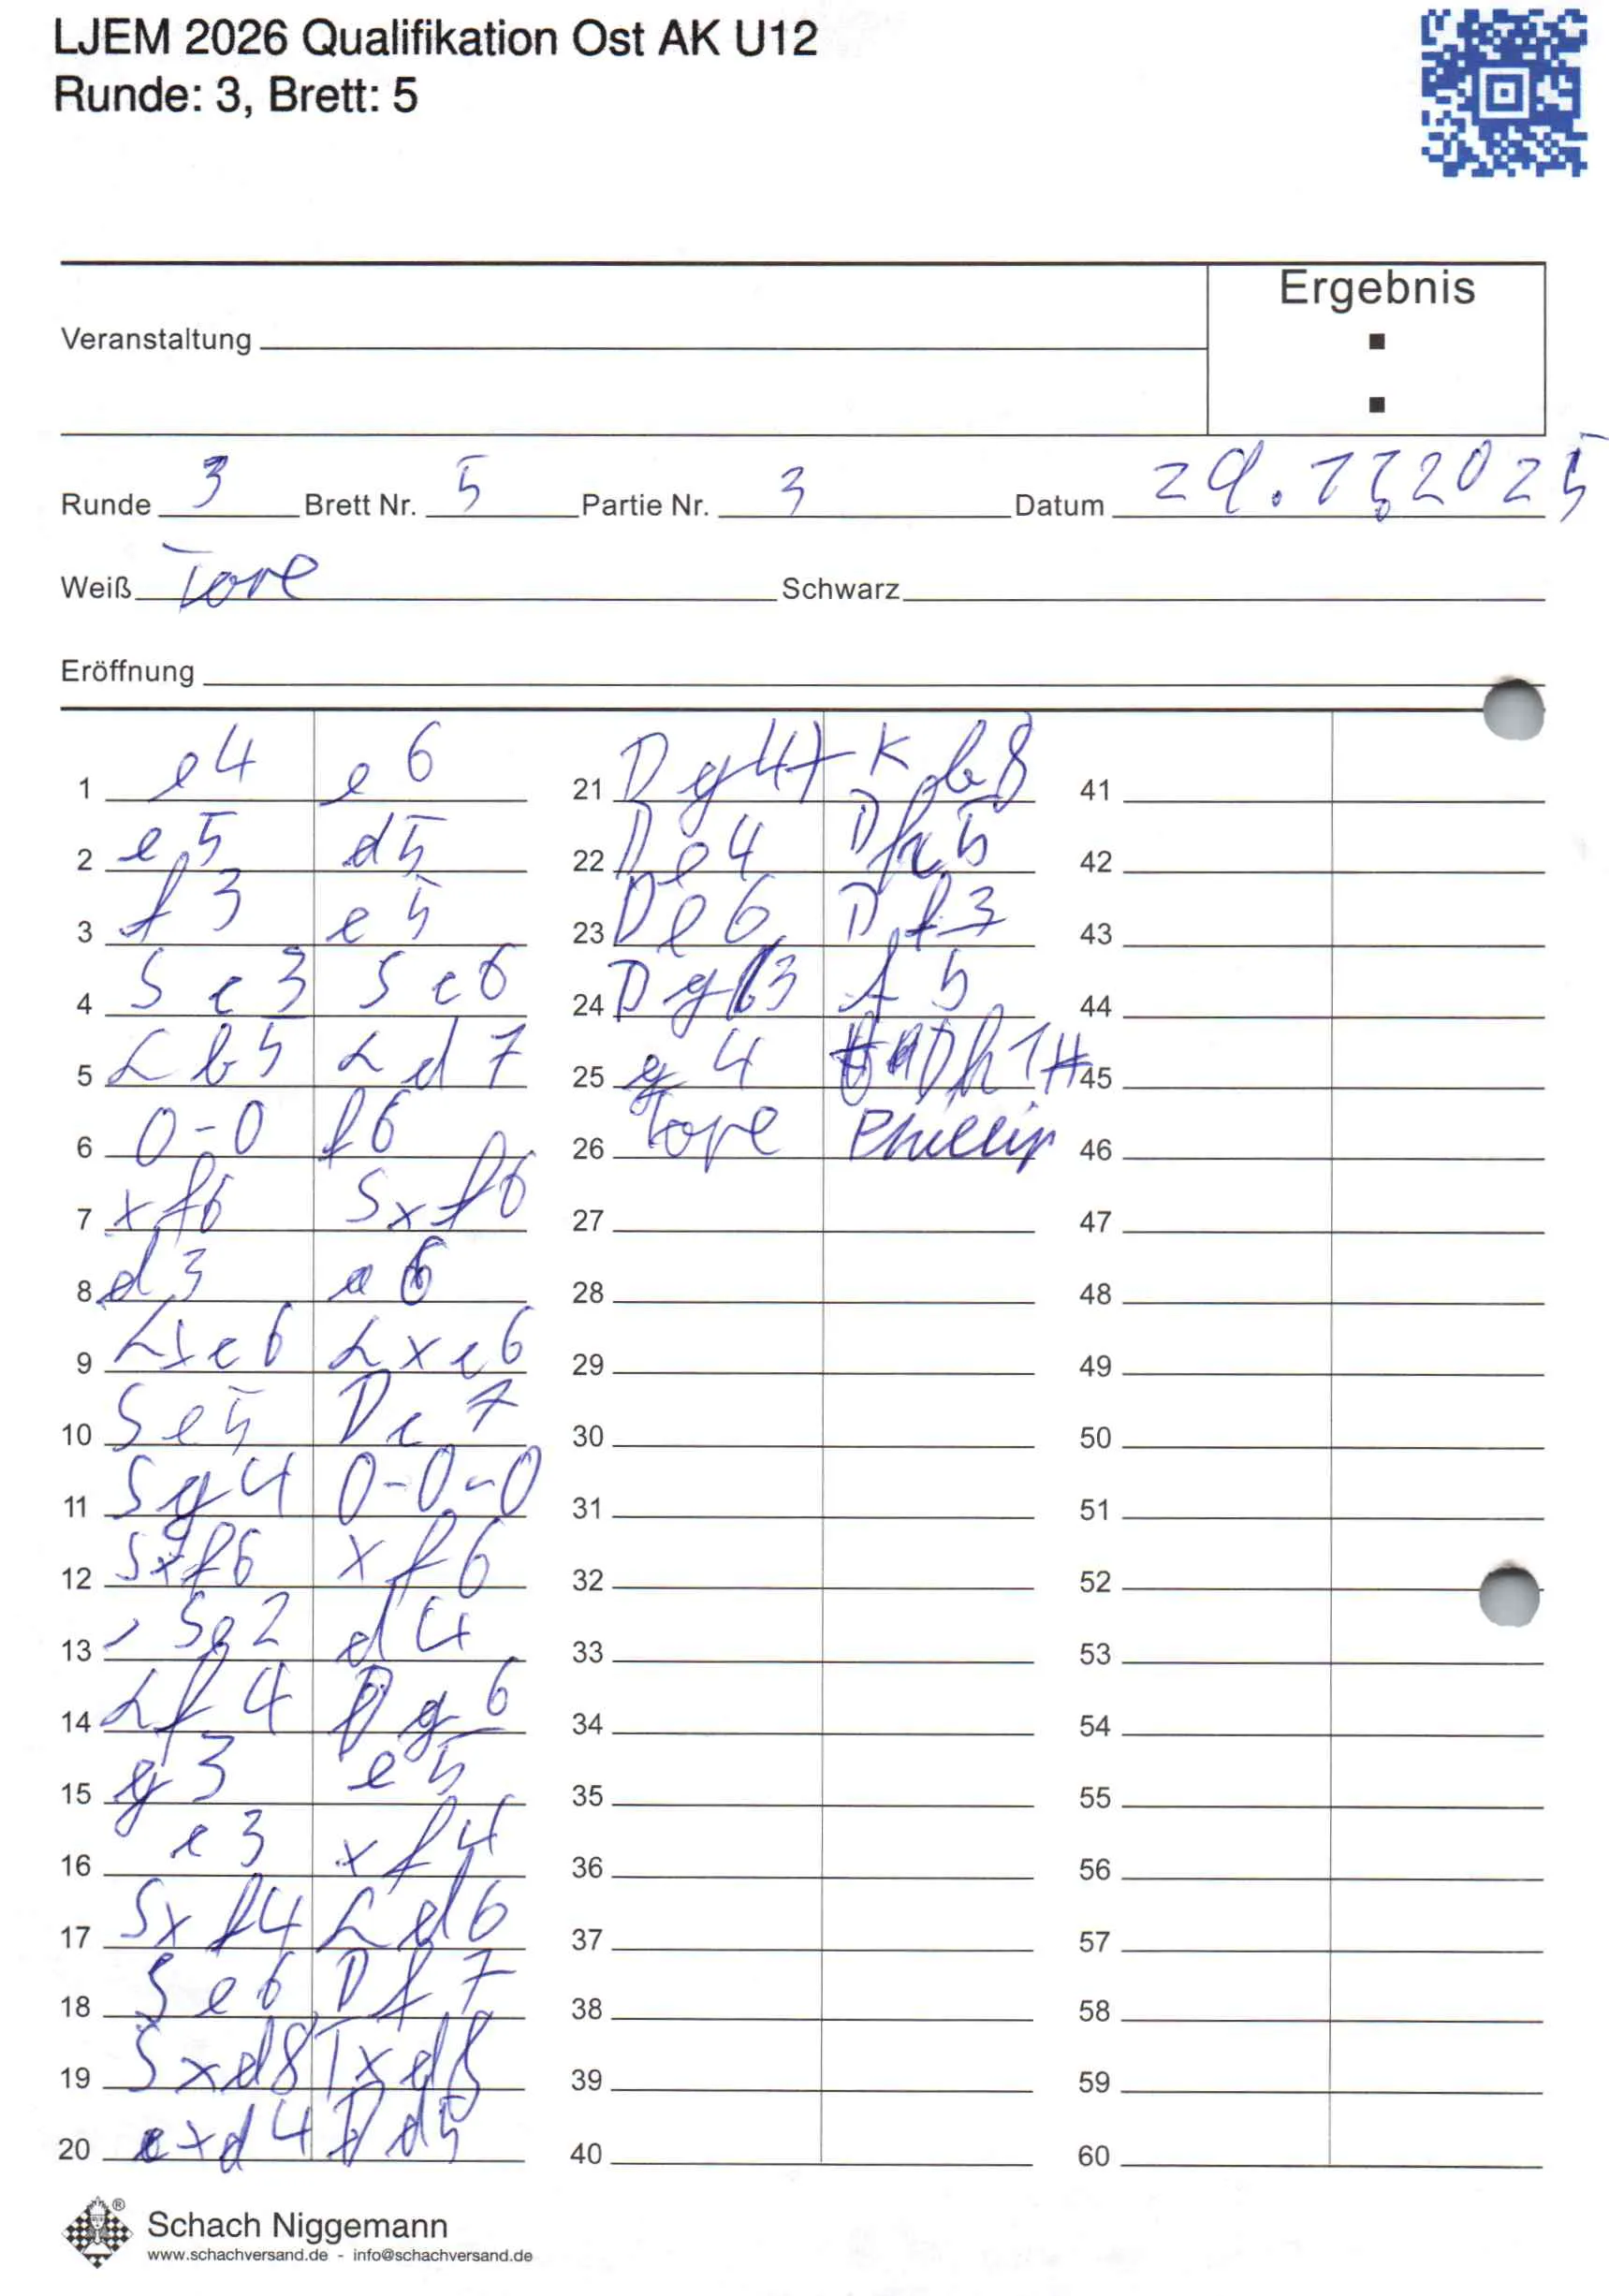 LJEM 2026 Qualifikation Ost AK U12
Runde: 3, Brett: 5
Ergebnis
Veranstaltung
:
Runde 3 Brett Nr. 5 Partie Nr. 3 Datum 29.12.2025
Weiß Tore Schwarz
Eröffnung
1 e4 e6 21 Dg4+ Kb8 41
2 e5 d5 22 De4 Dh5 42
3 f3 e5 23 De6 Df3 43
4 Sc3 Sc6 24 Dg3 f5 44
5 Lb5 Ld7 25 g4 Dh1# 45
6 0-0 f6 26 Tore Phillip 46
7 xf6 Sxf6 27 47
8 d3 a6 28 48
9 Lxc6 Lxc6 29 49
10 Se5 Dc7 30 50
11 Sg4 0-0-0 31 51
12 Sxf6 xf6 32 52
13 Se2 d4 33 53
14 Lf4 Dg6 34 54
15 g3 e5 35 55
16 c3 xf4 36 56
17 Sxf4 Ld6 37 57
18 Se6 Df7 38 58
19 Sxd8 Txd8 39 59
20 cxd4 Dd5 40 60
®
Schach Niggemann
www.schachversand.de - info@schachversand.de